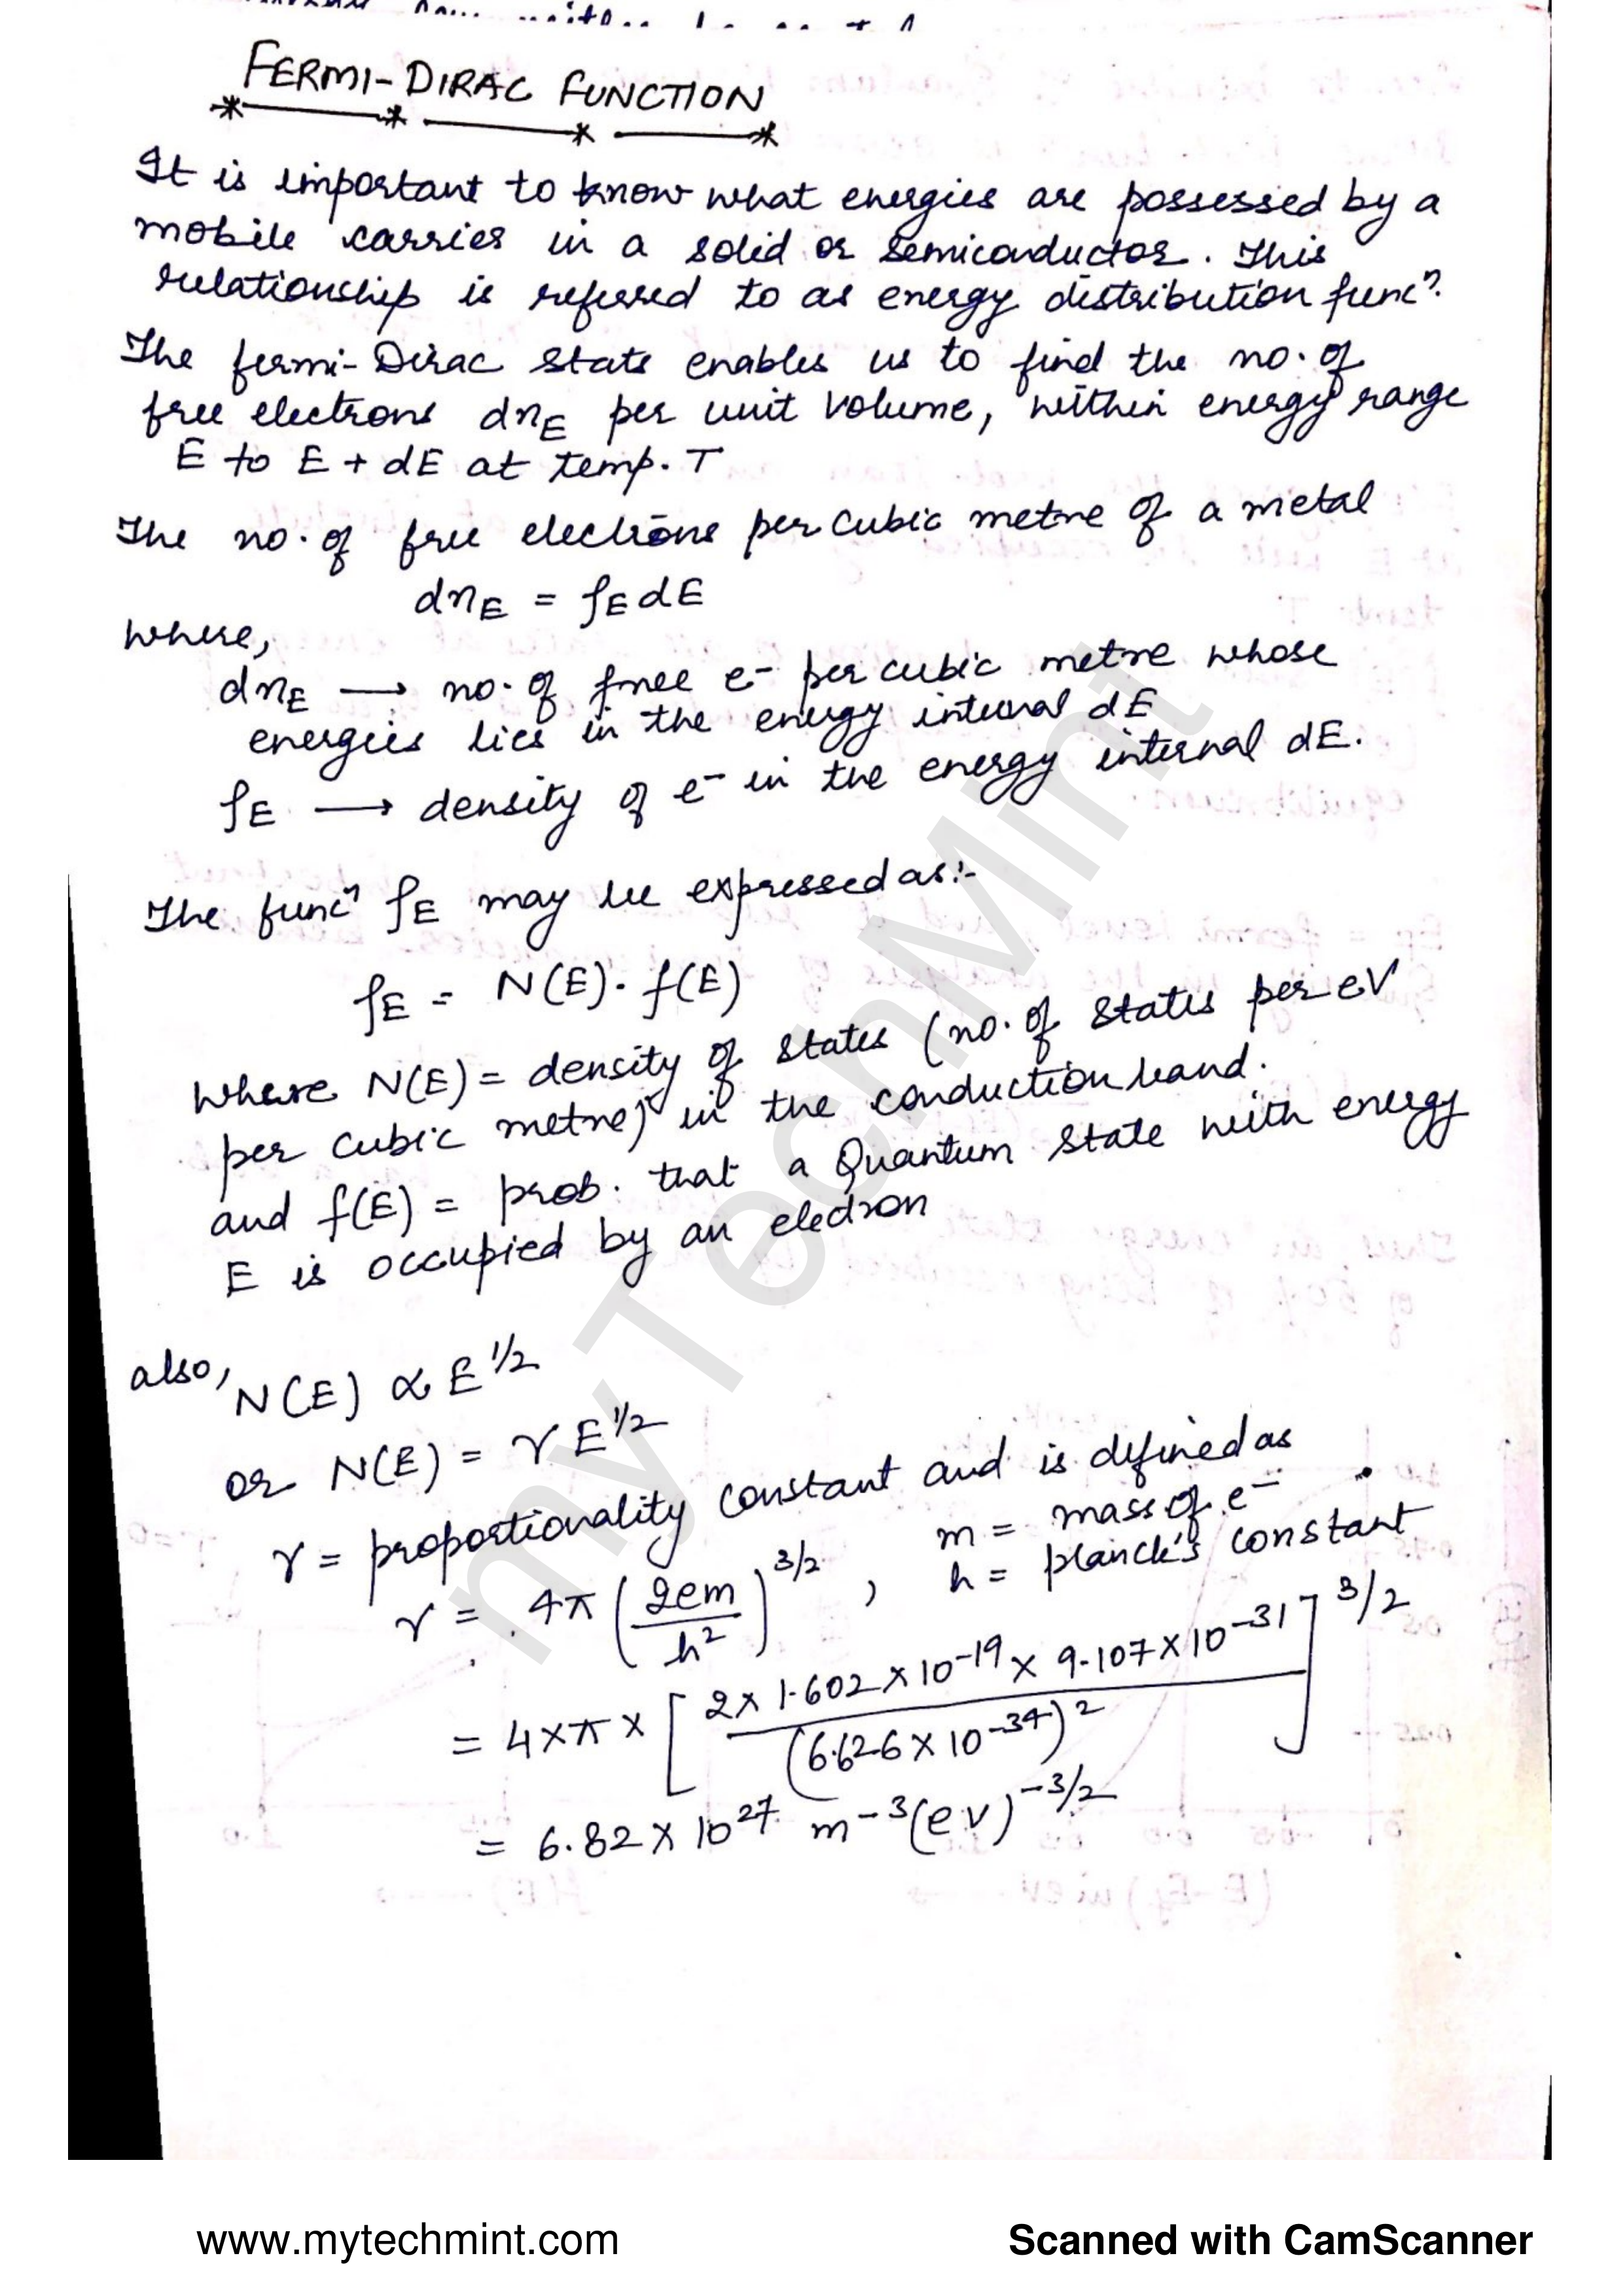 FERMI-DIRAC FUNCTION
It is important to know what energies are possessed by a
mobile carrier in a solid or semiconductor. This
relationship is referred to as energy distribution funcⁿ.
The fermi-Dirac State enables us to find the no. of
free electrons dnE per unit volume, within energy range
E to E + dE at temp. T
The no. of free electrons per cubic metre of a metal
dnE = ρE dE
where,
dnE → no. of free e⁻ per cubic metre whose
energies lies in the energy interval dE
ρE → density of e⁻ in the energy internal dE.
The funcⁿ ρE may be expressed as:-
ρE = N(E). f(E)
Where N(E) = density of states (no. of states per eV
per cubic metre) in the conduction band.
and f(E) = prob. that a Quantum state with energy
E is occupied by an electron
also, N(E) ∝ E^1/2
or N(E) = γ E^1/2
γ = proportionality constant and is defined as
γ = 4π (2em / h²)^3/2 , m = mass of e⁻
h = planck's constant
= 4×π× [2× 1.602×10⁻¹⁹× 9.107×10⁻³¹ / (6.626×10⁻³⁴)²]^3/2
= 6.82×10²⁷ m⁻³(eV)^-3/2
myTechMint
www.mytechmint.com
Scanned with CamScanner